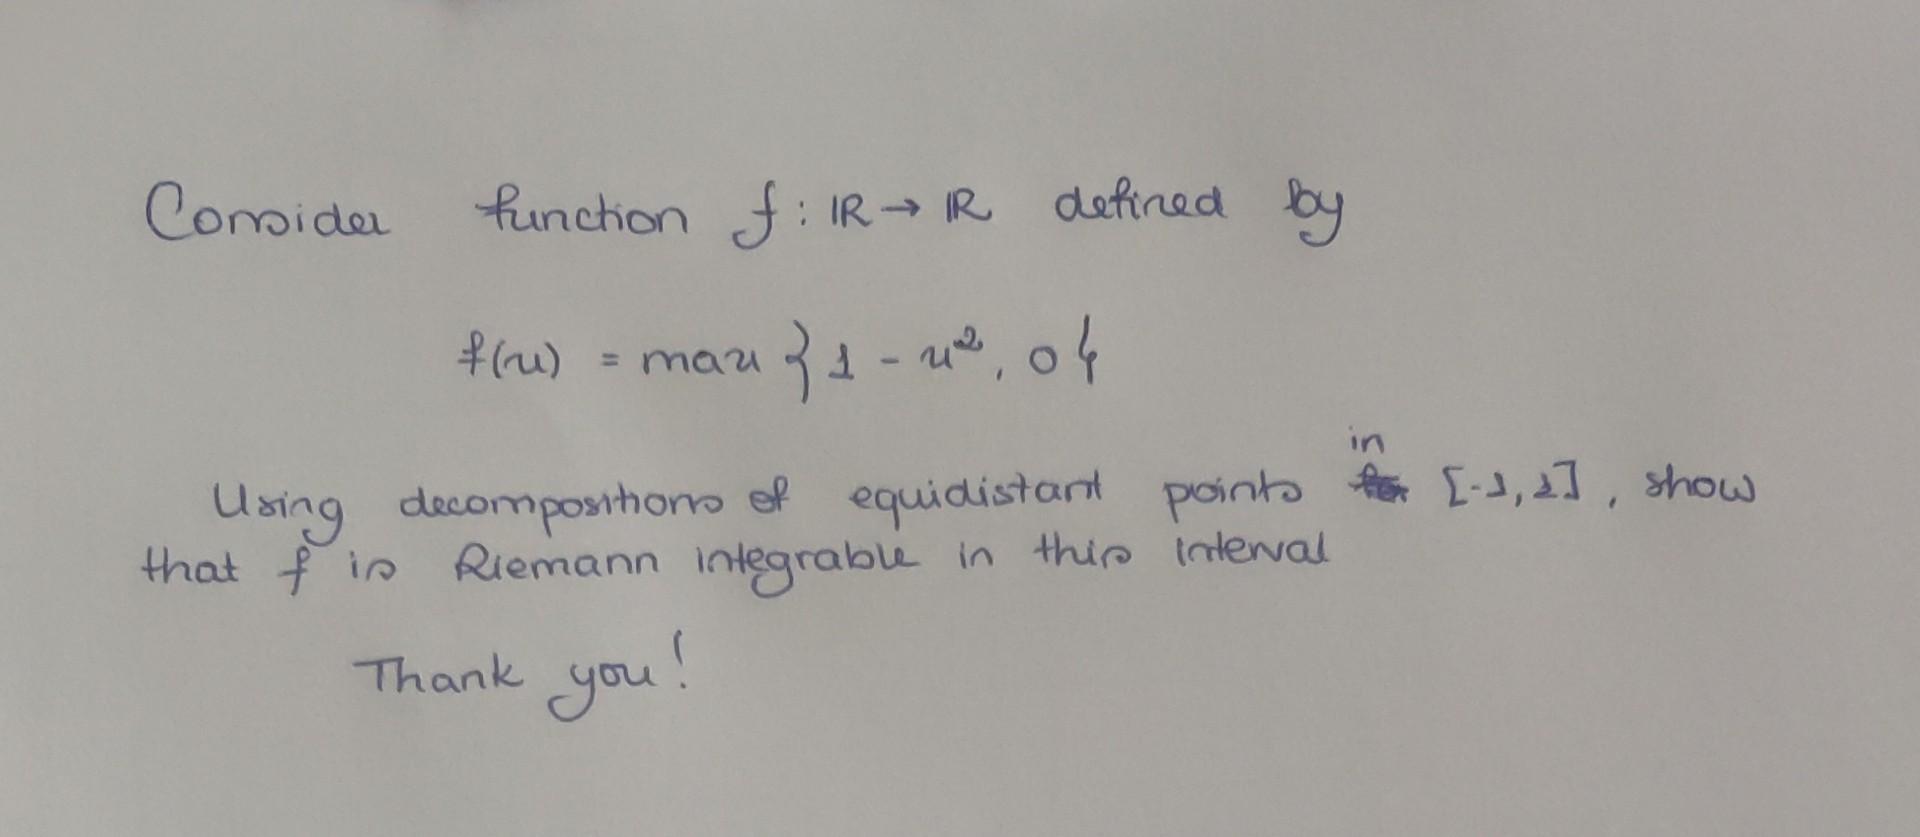 Consider function f: ℝ → ℝ defined by
f(x) = max {1 - x², 0}
Using decompositions of equidistant points in [-1,1], show
that f is Riemann integrable in this interval
Thank you!